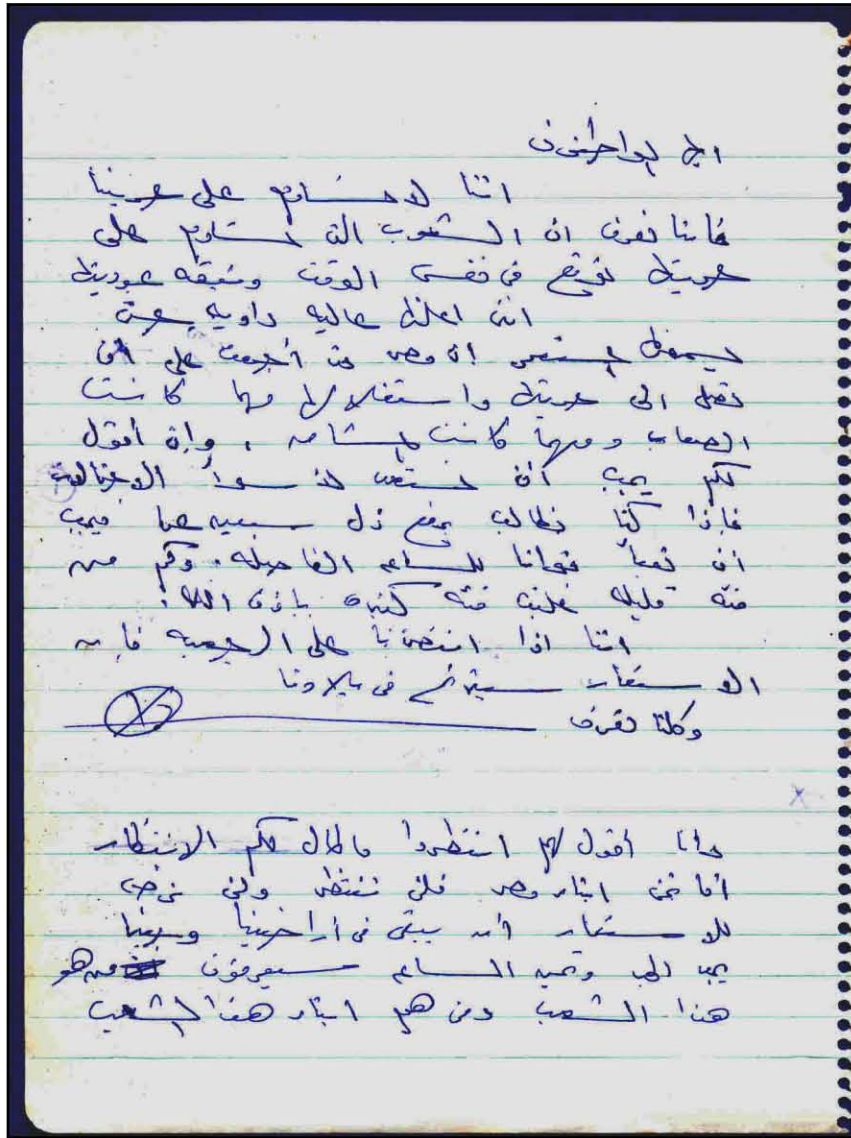 ايها المواطنون
اننا لا نساوم على حريتنا
فاننا نعرف ان الشعوب التى تساوم على
حريتها توقع فى نفس الوقت وثيقة عبوديتها
اننى اعلنها عاليه داويه
ان مصر قد أجمعت على أن
تصل الى حريتها واستقلالها مهما كانت
الصعاب ومهما كانت المشاق . وانى أقول
لكم يجب أن نستعد لأسوأ الاحتمالات
فاذا كنا نطالب بمحو ذل سبعين عاما فيجب
أن تعبأ قوانا للساعه الفاصله . وكم من
فئه قليله غلبت فئه كثيره باذن الله .
اننا اذا انتصرنا على الرجعيه فان
الاستعمار سينهار فى بلادنا
وكلنا نعرف
وانا أقول لهم انتظروا ماطال لكم الانتظار
أما نحن ابناء مصر فلن ننتظر ولن نرضى
للاستعمار أن يبقى فى أراضينا
وتحين الساعه ستعرفون من هو
هذا الشعب ومن هم ابناء هذا الشعب